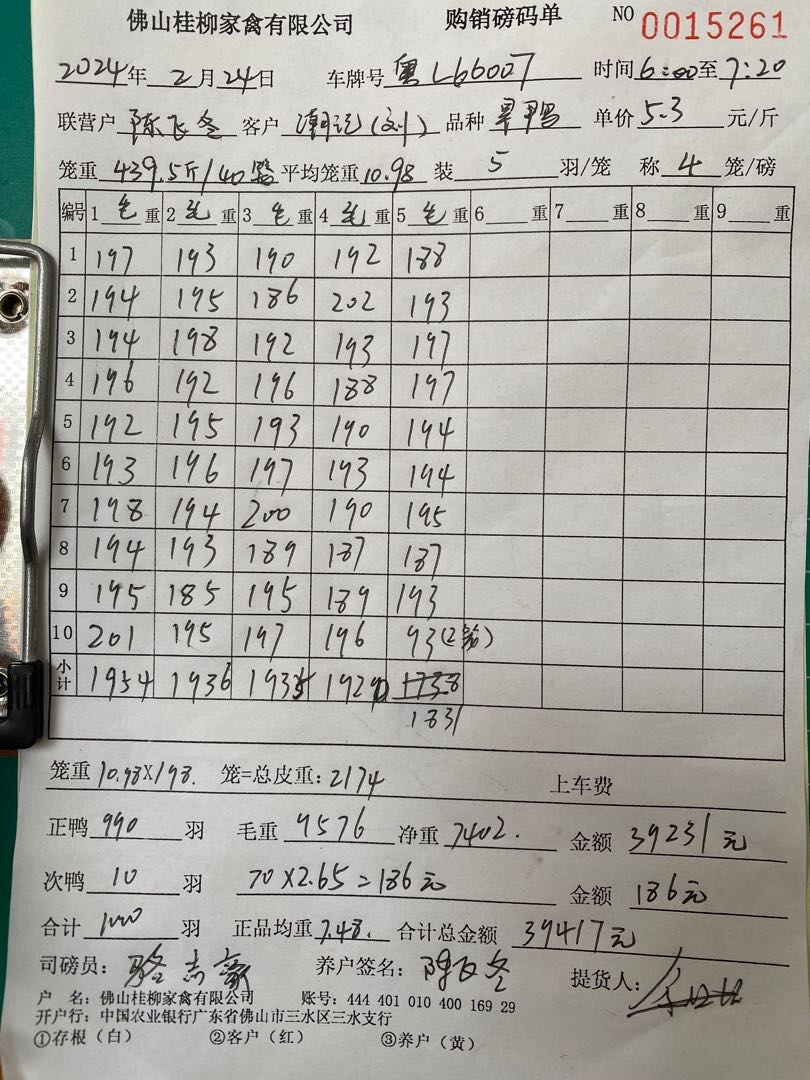 佛山桂柳家禽有限公司 购销磅码单 NO 0015261
2024年 2月 24日 车牌号 粤L66007 时间6:00至7:20
联营户 陈飞冬 客户 潮记(刘) 品种 旱鸭 单价 5.3 元/斤
笼重 439.5斤/40 平均笼重10.98 装 5 羽/笼 称 4 笼/磅
编号 1 毛 重 2 毛 重 3 毛 重 4 毛 重 5 毛 重 6 重 7 重 8 重 9 重
1 197 193 190 192 188
2 194 195 186 202 193
3 194 198 192 193 197
4 196 192 196 188 197
5 192 195 193 190 194
6 193 196 197 193 194
7 198 194 200 190 195
8 194 193 189 187 187
9 195 185 195 189 193
10 201 195 197 196 93(2笼)
小计 1954 1936 1935 1920 1738
1831
笼重 10.98X198. 笼=总皮重:2174 上车费
正鸭 990 羽 毛重 9576 净重 7402. 金额 39231元
次鸭 10 羽 70X2.65=186元 金额 186元
合计 1000 羽 正品均重 7.48. 合计总金额 39417元
司磅员: 骆志豪 养户签名: 陈飞冬 提货人:
户 名:佛山桂柳家禽有限公司 账号:444 401 010 400 169 29
开户行:中国农业银行广东省佛山市三水区三水支行
①存根(白) ②客户(红) ③养户(黄)